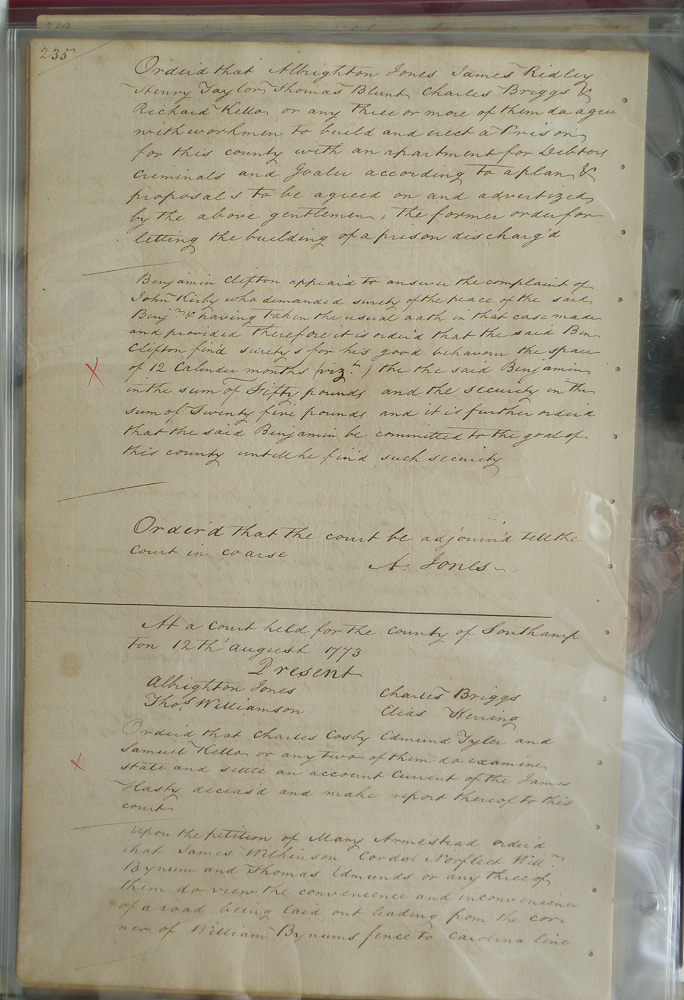 235
Orderd that Albrighton Jones James Ridley
Henry Taylor Thomas Blunt Charles Briggs &
Richard Kello or any three or more of them do agree
with workmen to build and erect a Prison
for this county with an apartment for Debtors
Criminals and Goaler according to a plan &
proposal s to be agreed on and advertized
by the above gentlemen, the former order for
letting the building of a prison discharg'd
Benjamin Clifton appeard to answer the complaint of
John Kirby who demanded surety of the peace of the said
Benj.n & having taken the usual oath in that case made
and provided therefore it is order'd that the said Ben
Clifton find surety s for his good behaviour the space
of 12 Calender months (viz.t) the the said Benjamin
in the sum of Fifty pounds and the security in the
sum of Twenty five pounds and it is further orderd
that the said Benjamin be committed to the goal of
this county untill he find such security
Order'd that the court be adjourn'd till the
Court in coarse
A. Jones
At a court held for the county of Southamp
ton 12th august 1773
Present
Albrighton Jones Charles Briggs
Tho.s Williamson Elias Herring
Orderd that Charles Cosby Edmund Tyler and
Samuel Kello or any two of them do examine
state and settle an account Current of the James
Hasty deceas'd and make report thereof to this
court
Upon the petition of Mary Armestead order'd
that James Wilkinson Cordal Norflect Will.m
Bynum and Thomas Edmunds or any three of
them do view the convenience and inconvenience
of a road being laid out leading from the cor
ner of William Bynums fence to Carolina line